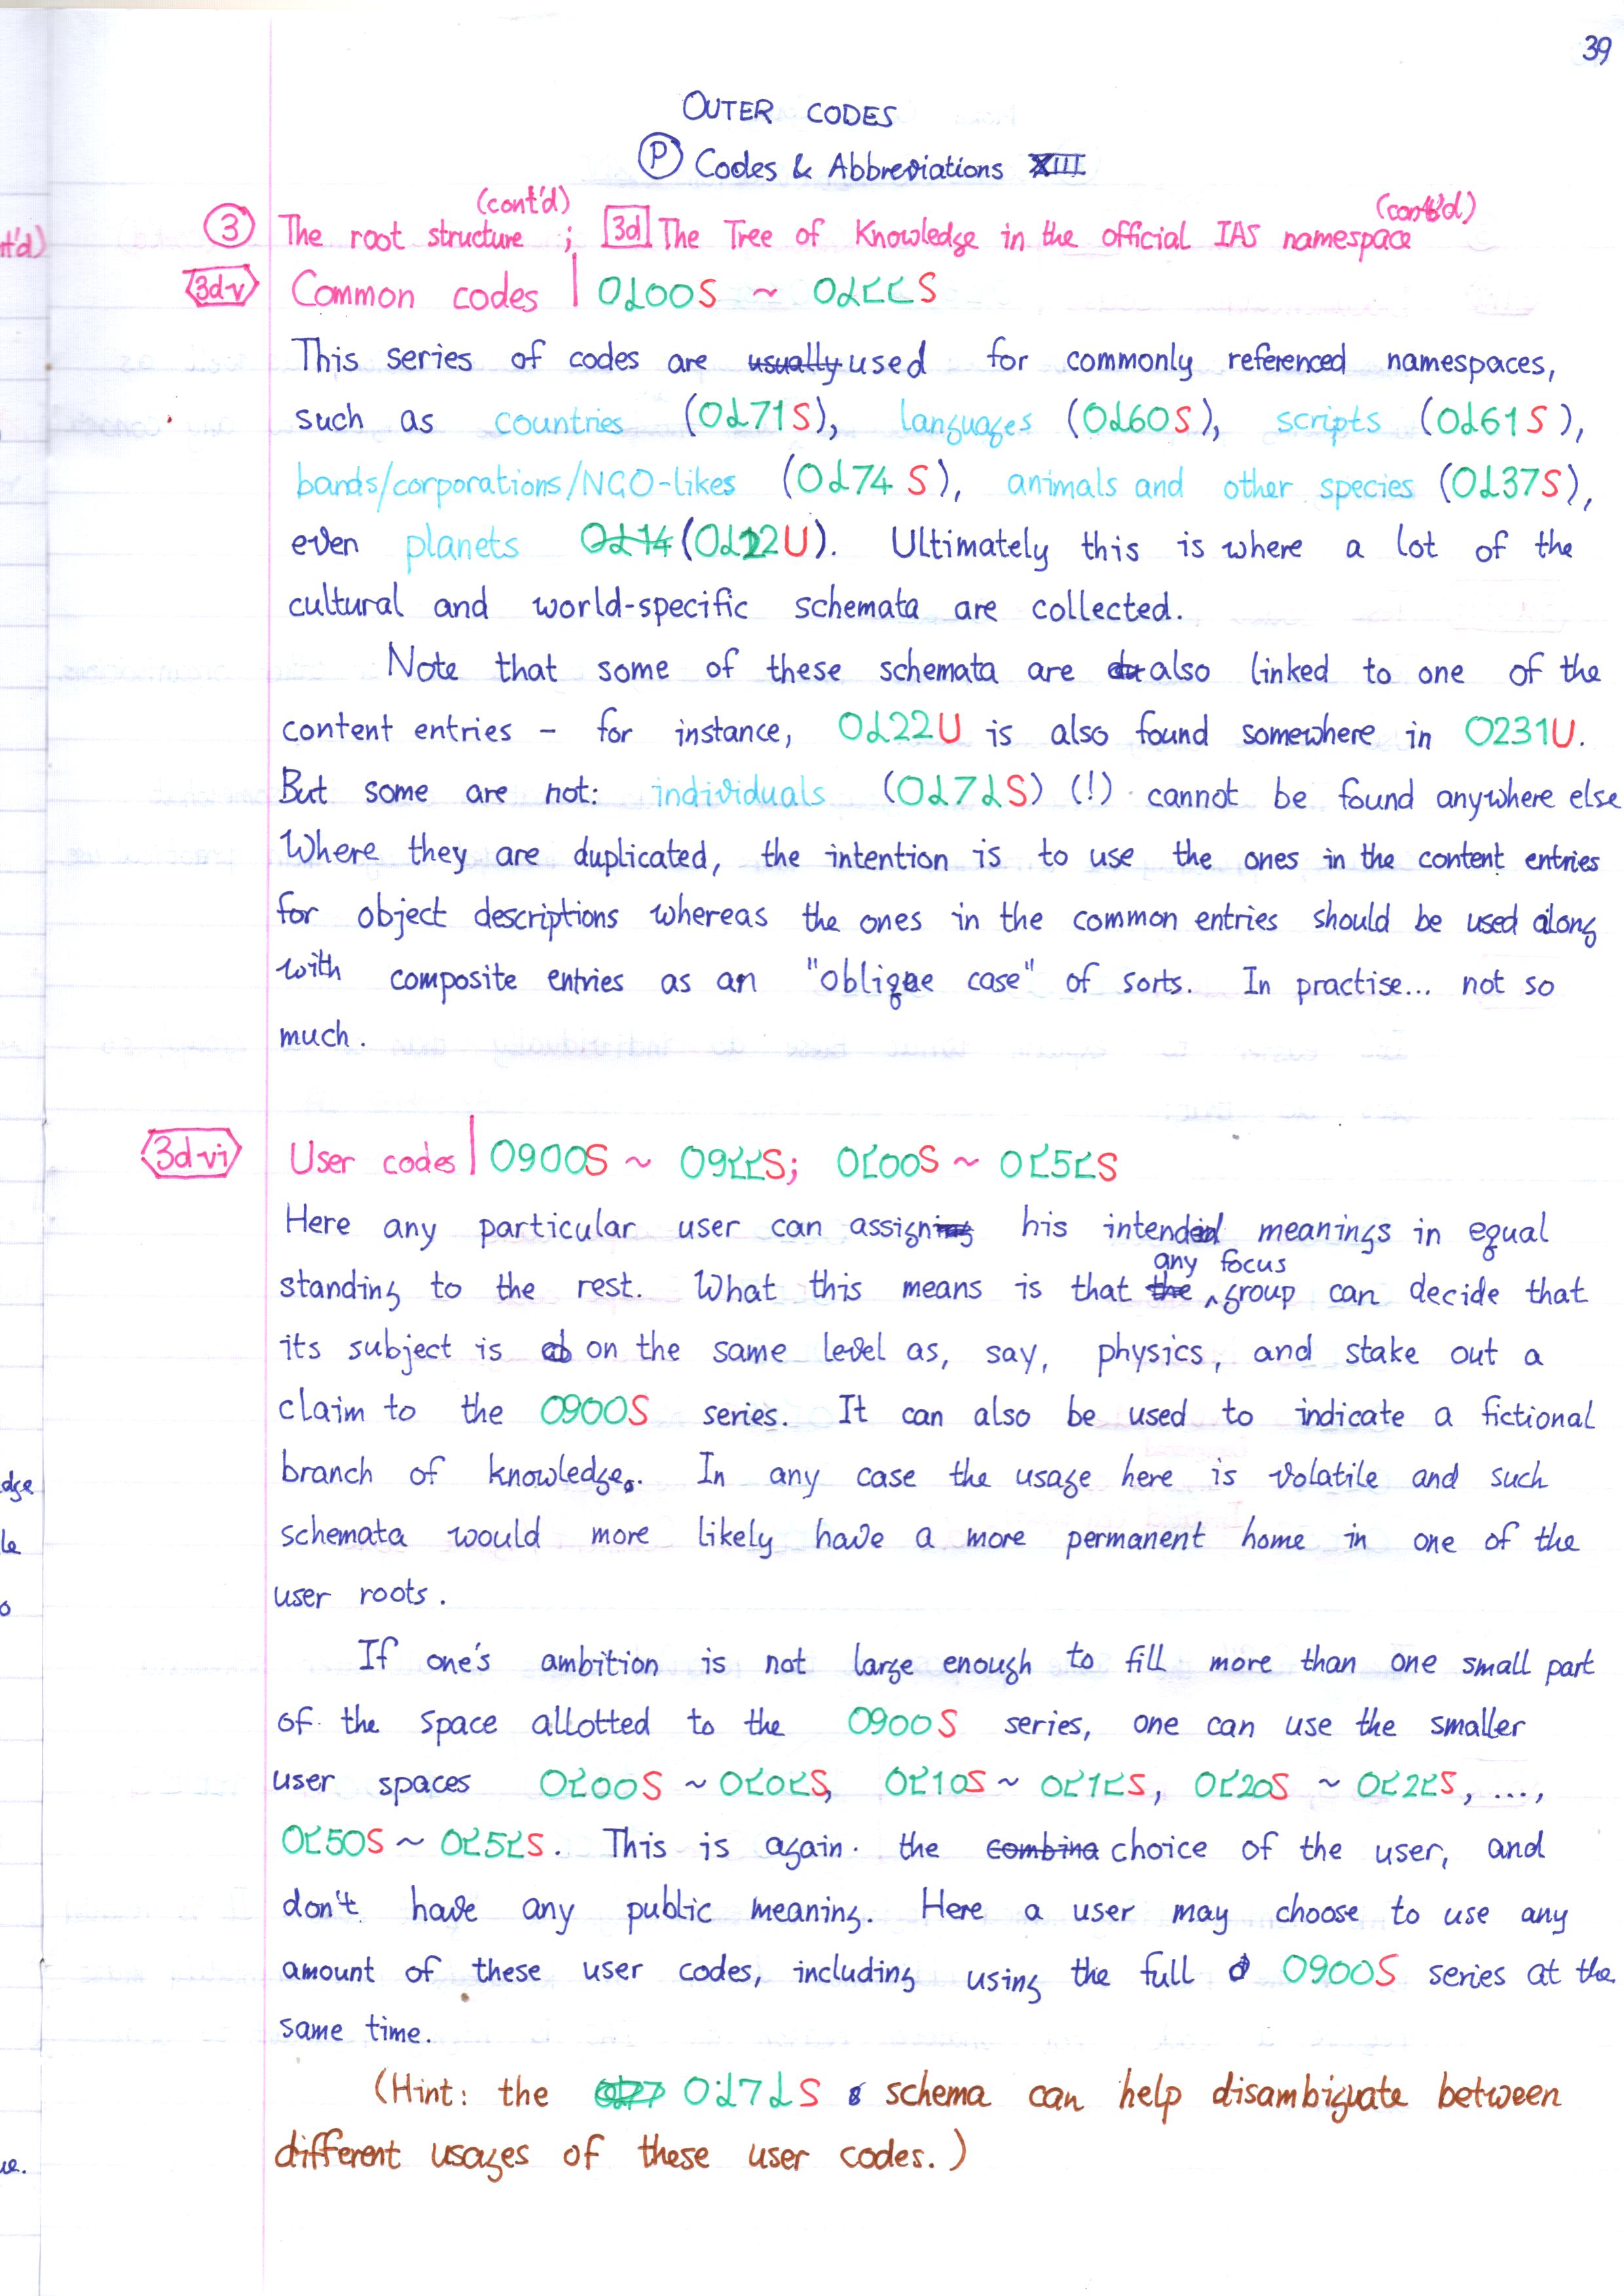 39
OUTER CODES
Ⓟ Codes & Abbreviations XIII
(cont'd) (cont'd)
③ The root structure ; 3d The Tree of Knowledge in the official IAS namespace
3d-v Common codes | 0↊00S ~ 0↊↋↋S
This series of codes are usually used for commonly referenced namespaces,
such as countries (0↊71S), languages (0↊60S), scripts (0↊61S),
bands/corporations/NGO-likes (0↊74S), animals and other species (0↊37S),
even planets 0↊14 (0↊22U). Ultimately this is where a lot of the
cultural and world-specific schemata are collected.
Note that some of these schemata are also linked to one of the
content entries – for instance, 0↊22U is also found somewhere in 0231U.
But some are not: individuals (0↊7↊S) (!) cannot be found anywhere else
Where they are duplicated, the intention is to use the ones in the content entries
for object descriptions whereas the ones in the common entries should be used along
with composite entries as an "oblique case" of sorts. In practise... not so
much.
3d-vi User codes | 0900S ~ 09↋↋S; 0↋00S ~ 0↋5↋S
Here any particular user can assign his intended meanings in equal
any focus
standing to the rest. What this means is that the ^ group can decide that
its subject is on the same level as, say, physics, and stake out a
claim to the 0900S series. It can also be used to indicate a fictional
branch of knowledge. In any case the usage here is volatile and such
schemata would more likely have a more permanent home in one of the
user roots.
If one's ambition is not large enough to fill more than one small part
of the space allotted to the 0900S series, one can use the smaller
user spaces 0↋00S ~ 0↋0↋S, 0↋10S ~ 0↋1↋S, 0↋20S ~ 0↋2↋S, ...,
0↋50S ~ 0↋5↋S. This is again the combina choice of the user, and
don't have any public meaning. Here a user may choose to use any
amount of these user codes, including using the full 0900S series at the
same time.
(Hint: the 0↊7↊S schema can help disambiguate between
different usages of these user codes.)